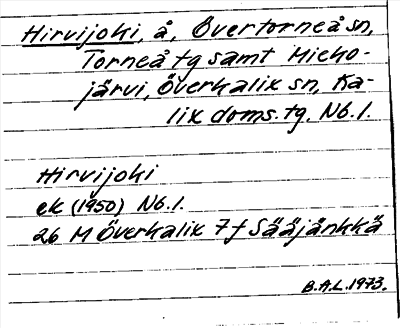 Hirvijoki, å, Övertorneå sn,
Torneå tg samt Hieto-
järvi, Överkalix sn, Ka-
lix doms.tg. Nb.l.
Hirvijoki
ek (1950) Nb.l.
26 M Överkalix 7 f Sääjänkkä
B.A.L.1973.